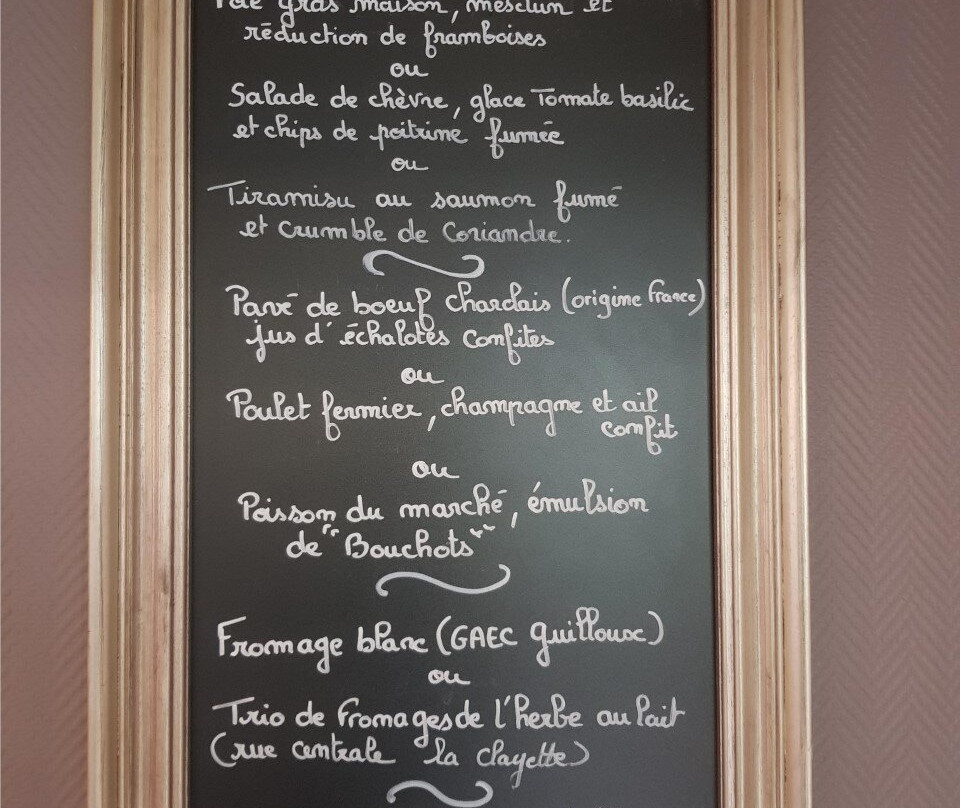 gras maison, mesclun et
réduction de framboises
ou
Salade de chèvre, glace Tomate basilic
et chips de poitrine fumée
ou
Tiramisu au saumon fumé
et crumble de Coriandre.
Pavé de boeuf charolais (origine France)
jus d'échalotes confites
ou
Poulet fermier, champagne et ail
confit
ou
Poisson du marché, émulsion
de "Bouchots"
Fromage blanc (GAEC Guilloux)
ou
Trio de Fromages de l'herbe au lait
(rue centrale la clayette)